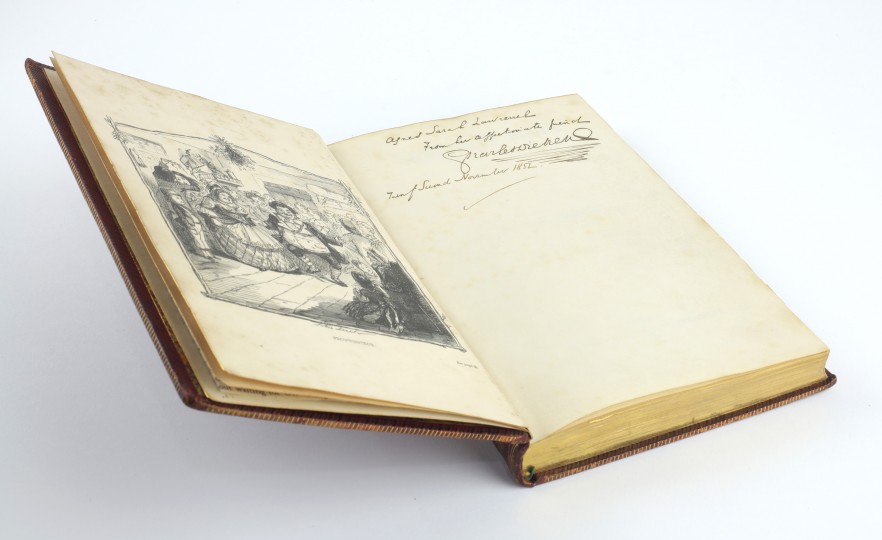 FRONTISPIECE.
Agnes Sarah Lawrence
From her affectionate friend
Charles Dickens
Twenty Second November 1852